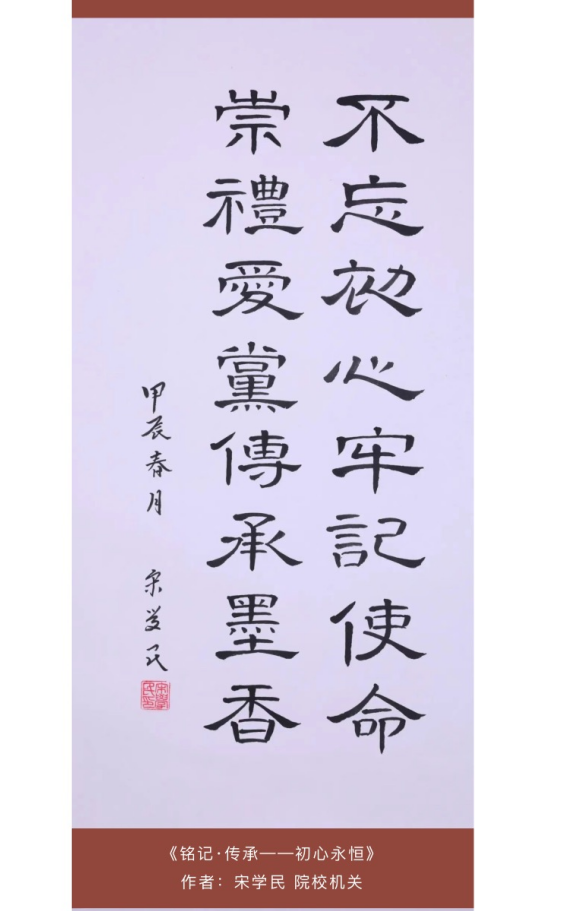 不忘初心牢記使命
崇禮愛黨傳承墨香
甲辰春月 宋学民
宋學民印
《铭记·传承——初心永恒》
作者：宋学民 院校机关